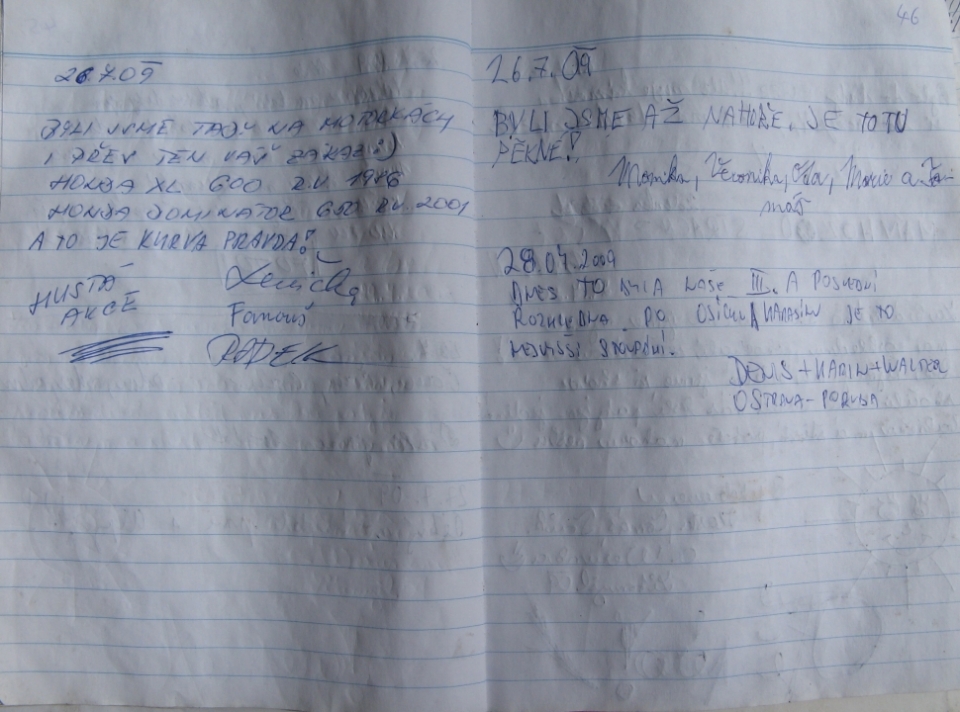 46
26.7.09
BYLI JSME TADY NA MOTORKÁCH
I PŘES TEN VÁŠ ZÁKAZ :)
HONDA XL 600 R.V 1986
HONDA DOMINATOR 650 R.V. 2001
A TO JE KURVA PRAVDA!
HUSTÁ
AKCE
Fanouš
RADEK
26.7.09
BYLI JSME AŽ NAHOŘE, JE TO TU
PĚKNÉ!
Monika, Veronika, Marie a
28.07.2009
DNES TO BYLA NAŠE III. A POSLEDNÍ
ROZHLEDNA PO JE TO
NEJVYŠŠÍ STOUPÁNÍ.
DENIS + KARIN + WALTER
OSTRAVA - PORUBA